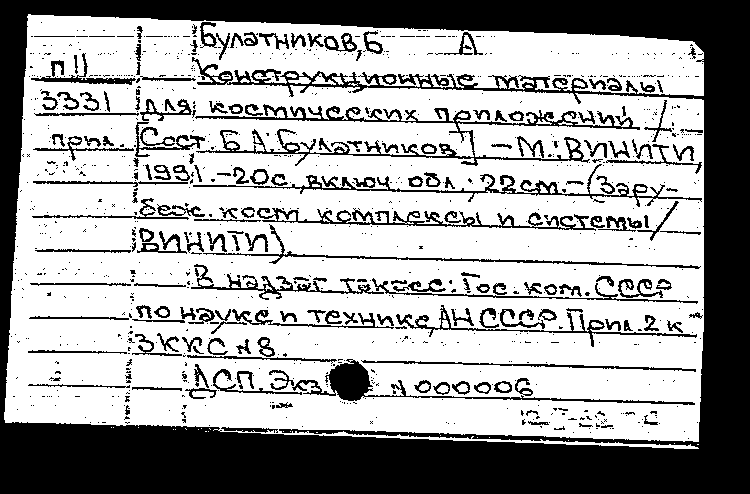 Булатников, Б А
П 11 Конструкционные материалы
3331 для космических приложений /
прил. [Сост. Б.А.Булатников] – М.: ВИНИТИ,
1991. – 20с., включ обл.; 22см. – (Зару-
беж. косм комплексы и системы /
ВИНИТИ).
В надзаг также: Гос. ком. СССР
по науке и технике, АН СССР. Прил. 2 к
ЗККС № 8.
ДСП. Экз. N 000006